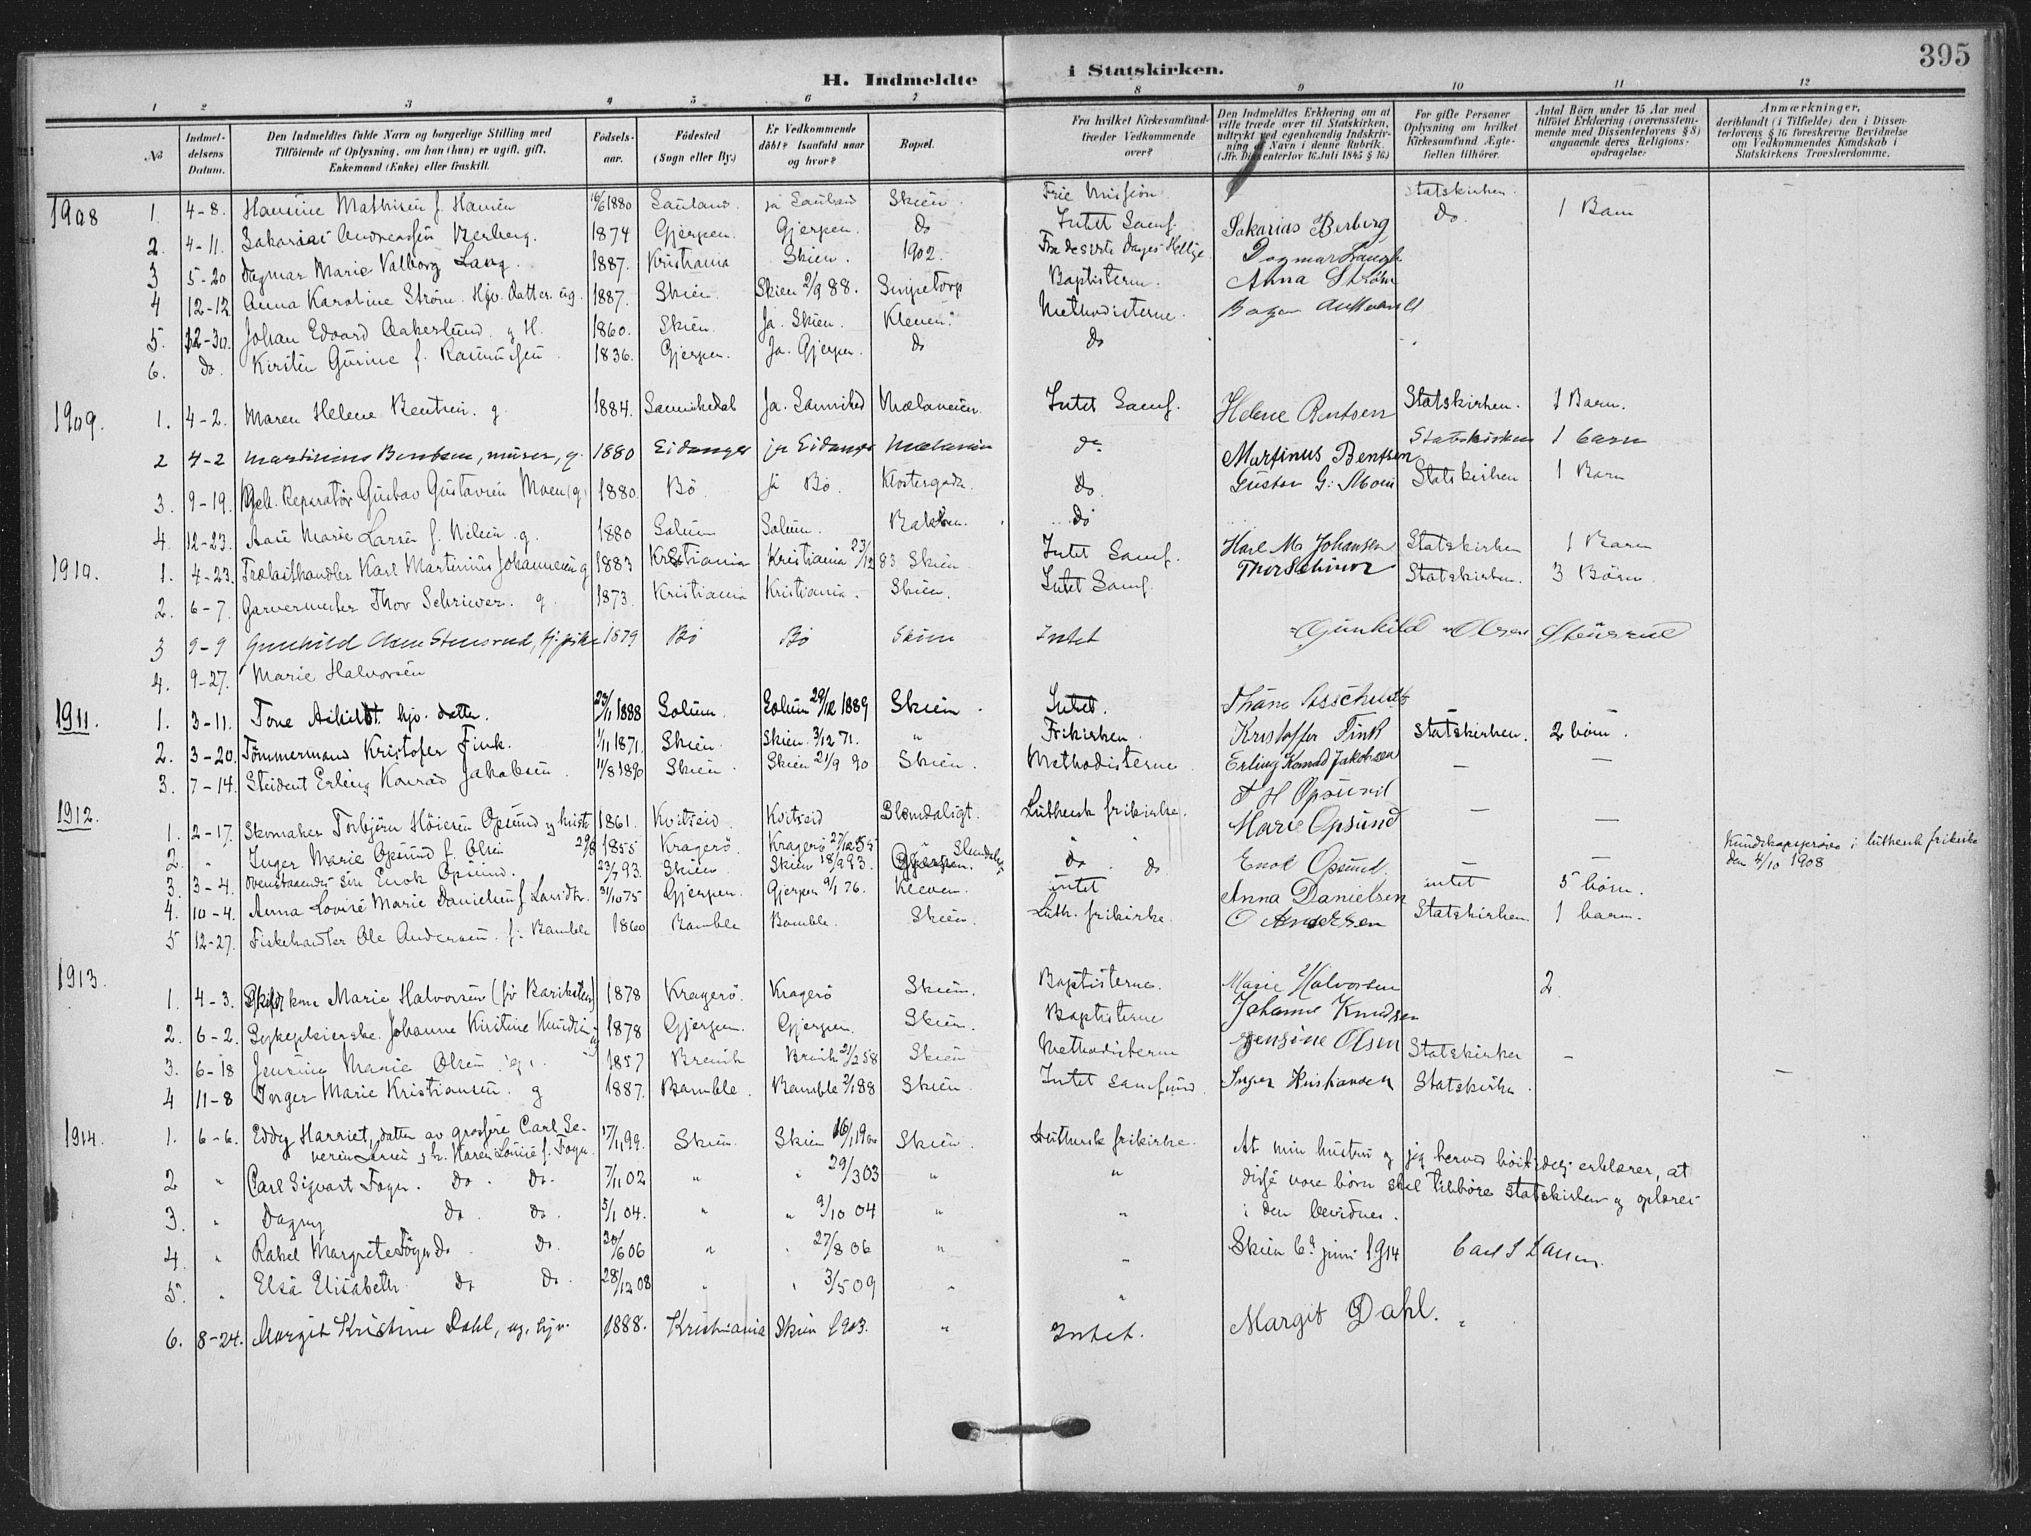 395
H. Indmeldte i Statskirken.
1 2 3 4 5 6 7 8 9 10 11 12
No
Indmel-
delsens
Datum.
Den Indmeldtes fulde Navn og borgerlige Stilling med
Tilföiende af Oplysning, om han (hun) er ugift, gift,
Enkemand (Enke) eller fraskilt.
Födsels-
aar.
Födested
(Sogn eller By.)
Er Vedkommende
döbt? Isaafald naar
og hvor?
Bopæl.
Fra hvilket Kirkesamfund
træder Vedkommende
over?
Den Indmeldtes Erklæring om at
ville træde over til Statskirken,
udtrykt ved egenhændig Indskriv-
ning af Navn i denne Rubrik.
(Jfr. Dissenterlov 16 Juli 1845 § 16.)
For gifte Personer
Oplysning om hvilket
Kirkesamfund Ægte-
fællen tilhörer.
Antal Börn under 15 Aar med
tilföiet Erklæring (overensstem-
mende med Dissenterlovens § 8)
angaaende deres Religions-
opdragelse.
Anmærkninger,
deriblandt (i Tilfælde) den i Dissen-
terlovens § 16 foreskrevne Bevidnelse
om Vedkommendes Kundskab i
Statskirkens Troeslærdomme.
1908 1. 4-8. Hansine Mathisen f. Hansen 16/6 1880 Sauland ja Sauland Skien Frie Mission Statskirken. 1 Barn
2. 4-11. Sakarias Andreassen Berberg. 1874 Gjerpen. Gjerpen. do Intet Samf. Sakarias Berberg do
3 5-20 Dagmar Marie Valborg Lang. 1887. Kristiania Skien. 1902. Fra de sidste Dages Hellige
4 12-12 Anna Karoline Strøm. Hjv. Datter. ug. 1887. Skien. Skien 2/9 88. Baptisterne. Anna Strøm
5. 12-30. Johan Edvard Aakerlund. g H. 1860. Skien. Ja. Skien. Kleven. Methodisterne.
6. do. Kirsten Gurine f. Rasmussen 1836. Gjerpen. Ja. Gjerpen. do do
1909. 1. 4-2. Maren Helene Bentsen. g. 1884. Sannikedal Ja. Sanniked Mælaveien. Intet Samf. Helene Bentsen Statskirken. 1 Barn.
2 4-2 Martinius Bentsen, murer, g. 1880 Eidanger ja Eidanger Mælaveien do Martinus Bentsen Statskirken 1 barn
3. 9-19. Reparatør Gustav Gustavsen Moen (g) 1880. Bø. ja Bø. Klostergade. do. Gustav G. Moen Statskirken 1 Barn
4. 12-23. Aase Marie Larsen f. Nilsen. g. 1880 Solum Solum. Bakken. do
1910. 1. 4-23. Trælasthandler Karl Martinius Johannesen g 1883 Kristiania Kristiania 23/12 83 Skien Intet Samf. Karl M. Johansen Statskirken 1 Barn
2. 6-7. Garvermester Thor Schriwer. g. 1873. Kristiania Kristiania. Skien. Intet Samf. Statskirken. 3 Børn.
3 9-9 Gunhild Olsen Stensrud, tj.pike 1879 Bø Bø Skien Intet Gunhild Olsen Stensrud
4. 9-27. Marie Halvorsen
1911. 1. 3-11. Tone hjv. datter. 23/11 1888 Solum. Solum 29/12 1889 Skien. Intet.
2. 3-20. Tømmermand Kristofer Fink. 1/11 1871. Skien. Skien. 3/12 71. " Frikirken. Kristoffer Fink Statskirken. 2 børn.
3. 7-14. Student Erling Konrad Jakobsen. 11/8 1890 Skien. Skien 21/9 90 Skien. Methodisterne. Erling Konrad Jakobsen — —
1912. 1. 2-17. Skomaker Torbjørn Høiesen Opsund og hustr 1861. Kvitseid. Kvitseid Blomdalsgt. Luthersk frikirke. T H Opsund — —
2. " Inger Marie Opsund f. Olsen 29/8 1855 Kragerø. Kragerø 27/12 55 " Marie Opsund
3. 3-4. Ovenstaaendes søn Enok Opsund. 23/7 93. Skien. Skien 18/9 93. do do Enok Opsund — — Kundskapsprøve i luthersk frikirke
den 4/10 1908
4. 10-4. Anna Lovise Marie Danielsen f. 31/10 75 Gjerpen. Gjerpen 9/1 76. Kleven. intet Anna Danielsen intet 5 børn.
5 12-27. Fiskehandler Ole Andersen. f. Bamble 1860 Bamble Bamble. Skien. Luth. frikirke. O Andersen Statskirken 1 barn.
1913. 1. 4-3. Marie Halvorsen 1878 Kragerø. Kragerø Skien. Baptisterne. Marie Halvorsen 2
2. 6-2. Sykepleierske. Johanne Kirstine Knudsen ug 1878 Gjerpen. Gjerpen. Skien. Baptisterne Johanne Knudsen
3. 6-18 Jensine Marie Olsen g. 1857 Brevik Brevik 21/2 58 Skien Methodisterne Jensine Olsen Statskirken —
4 11-8 Inger Marie Kristiansen. g 1887. Bamble. Bamble 2/1 88 Skien. Intet samfund. Inger Kristiansen Statskirken. —
1914. 1. 6-6. Eddy Harriet, datter av grosserer Carl Se-
verin Larsen g h. Maren Lovise f. Fogn. 17/11 99. Skien. Skien 16/1 1900 Skien. Luthersk frikirke. At min hustru og jeg herved høitidelig erklærer, at
2 " Carl Sigvart Fogn. do. do. 7/11 02 " " 29/3 03 " " disse vore børn skal tilhøre Statskirken og oplæres
3. " Dagny do. do. 5/1 04. " " 9/10 04 " " i den bevidnes.
4. " Rakel Margrete Fogn do. do. 30/6 06 " " 27/8 06 " " Skien 6. juni 1914 Carl S Larsen.
5. " Elsa Elisabeth. do do. 28/12 08 " " 3/5 09 " "
6. 8-24. Margit Kristine Dahl, ug. hjv. 1888. Kristiania Skien 1903. " Intet. Margit Dahl.